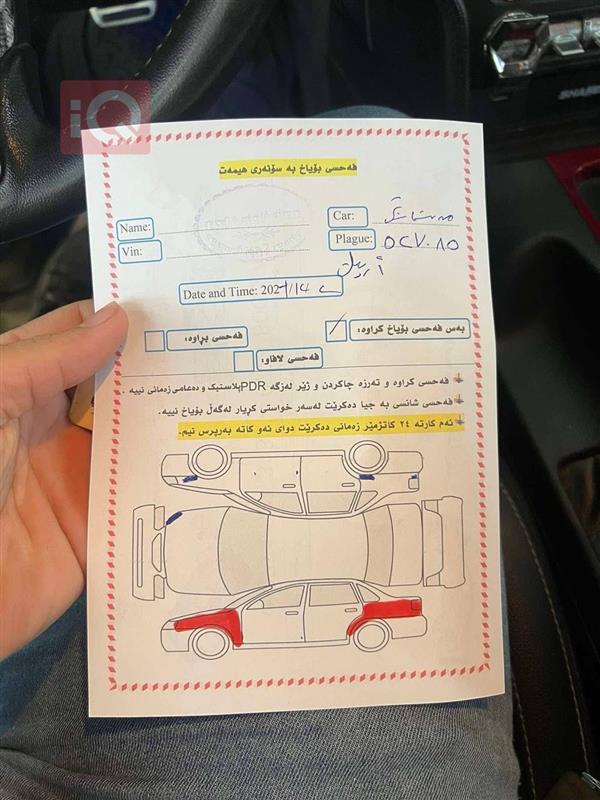 iQ
SHAKE
فەحسی بۆیاخ بە سۆنەری هیمەت
Name:
Car:
Vin:
Plague:
Date and Time: 202
فەحسی براوە:
بەس فەحسی بۆیاخ کراوە:
فەحسی لافاو:
فەحسی کراوە و تەرزە چاکردن و ژێر لەزگە PDR پلاستیک و دەعامی زەمانی نییە .
فەحسی شانسی بە جیا دەکرێت لەسەر خواستی کڕیار لەگەڵ بۆیاخ نییە.
ئەم کارتە ٢٤ کاتژمێر زەمانی دەکرێت دوای ئەو کاتە بەرپرس نیم.